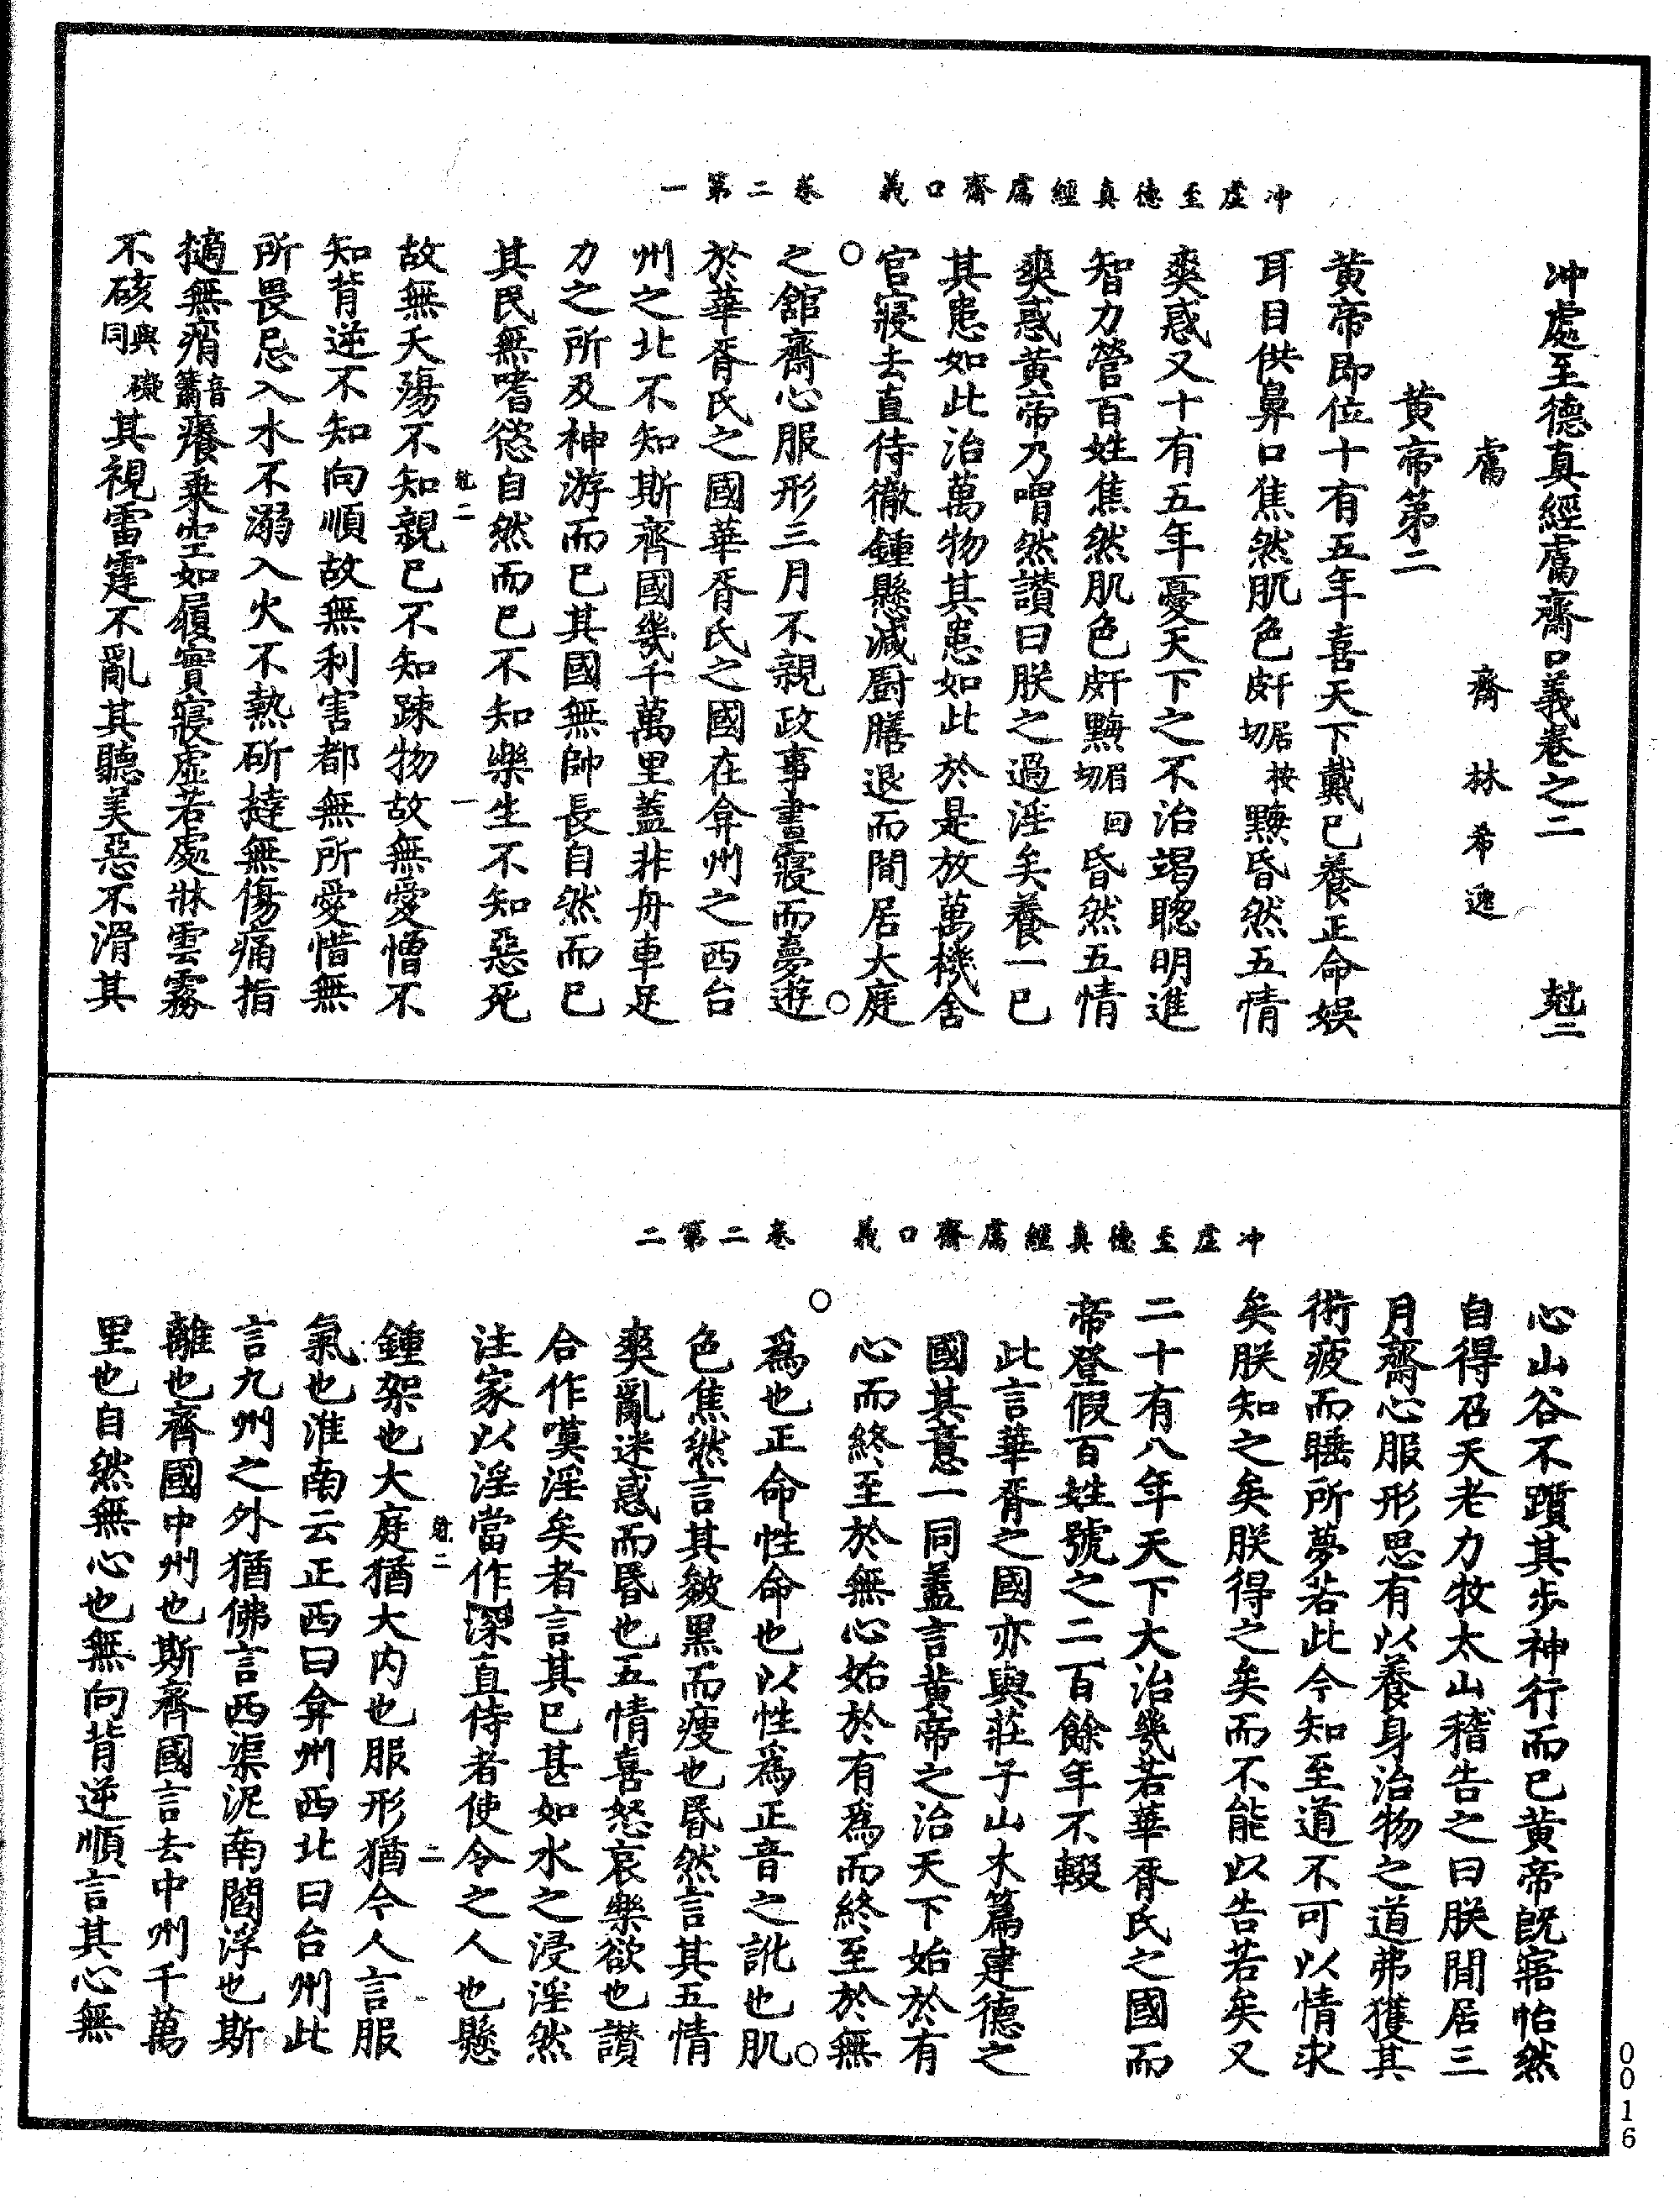 冲虛至德真經鬳齋口義卷二第一
冲虛至德真經鬳齋口義卷之二 尅二
鬳齋林希逸
黃帝第二
黃帝即位十有五年喜天下戴已養正命娛
耳目供鼻口焦然肌色皯居按切黣昏然五情
爽惑又十有五年憂天下之不治竭聦明進
智力營百姓焦然肌色皯黣眉回切昏然五情
爽惑黃帝乃喟然讃曰朕之過淫矣養一已
其患如此治萬物其患如此於是放萬機舍
官寢去直侍徹鍾懸減厨膳退而間居大庭
之舘齋心服形三月不親政事晝寢而夢遊
於華胥氏之國華胥氏之國在弇州之西台
州之北不知斯齊國幾千萬里蓋非舟車足
力之所及神游而已其國無帥長自然而已
其民無嗜慾自然而已不知樂生不知惡死
尅二 一
故無夭殤不知親已不知踈物故無愛憎不
知背逆不知向順故無利害都無所愛惜無
所畏忌入水不溺入火不熱斫撻無傷痛指
擿無痟音蕭癢乗空如履實寢虛若處牀雲霧
不硋與礙同其視雷霆不亂其聽美惡不滑其
冲虛至德真經鬳齋口義卷二第二
心山谷不躓其步神行而已黃帝旣寤怡然
自得召天老力牧太山稽告之曰朕間居三
月齋心服形思有以養身治物之道弗獲其
術疲而睡所夢若此今知至道不可以情求
矣朕知之矣朕得之矣而不能以告若矣又
二十有八年天下大治幾若華胥氏之國而
帝登假百姓號之二百餘年不輟
此言華胥之國亦與莊子山木篇建德之
國其意一同蓋言黃帝之治天下始於有
心而終至於無心始於有爲而終至於無
爲也正命性命也以性爲正音之訛也肌
色焦然言其皴黑而瘦也昏然言其五情
爽亂迷惑而昏也五情喜怒哀樂欲也讃
合作嘆淫矣者言其已甚如水之浸淫然
注家以淫當作深直侍者使令之人也懸
尅二 二
鍾架也大庭猶大内也服形猶今人言服
氣也淮南云正西曰弇州西北曰台州此
言九州之外猶佛言西渠泥南閻浮也斯
離也齊國中州也斯齊國言去中州千萬
里也自然無心也無向背逆順言其心無
0016